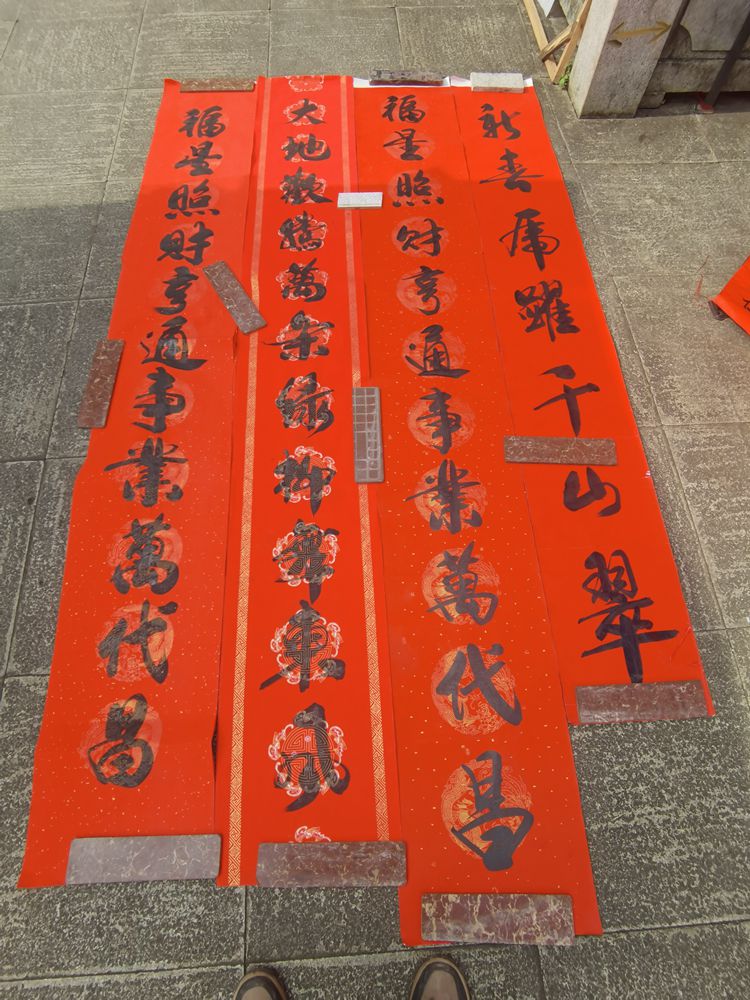 新春虎躍千山翠
福星照財亨通事業萬代昌
大地歡騰萬条綠柳舞東風
福星照財亨通事業萬代昌